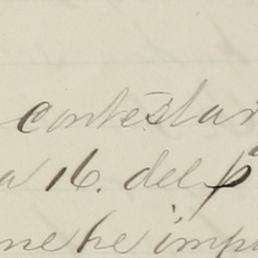 contestar
a 16. del p
me he imp